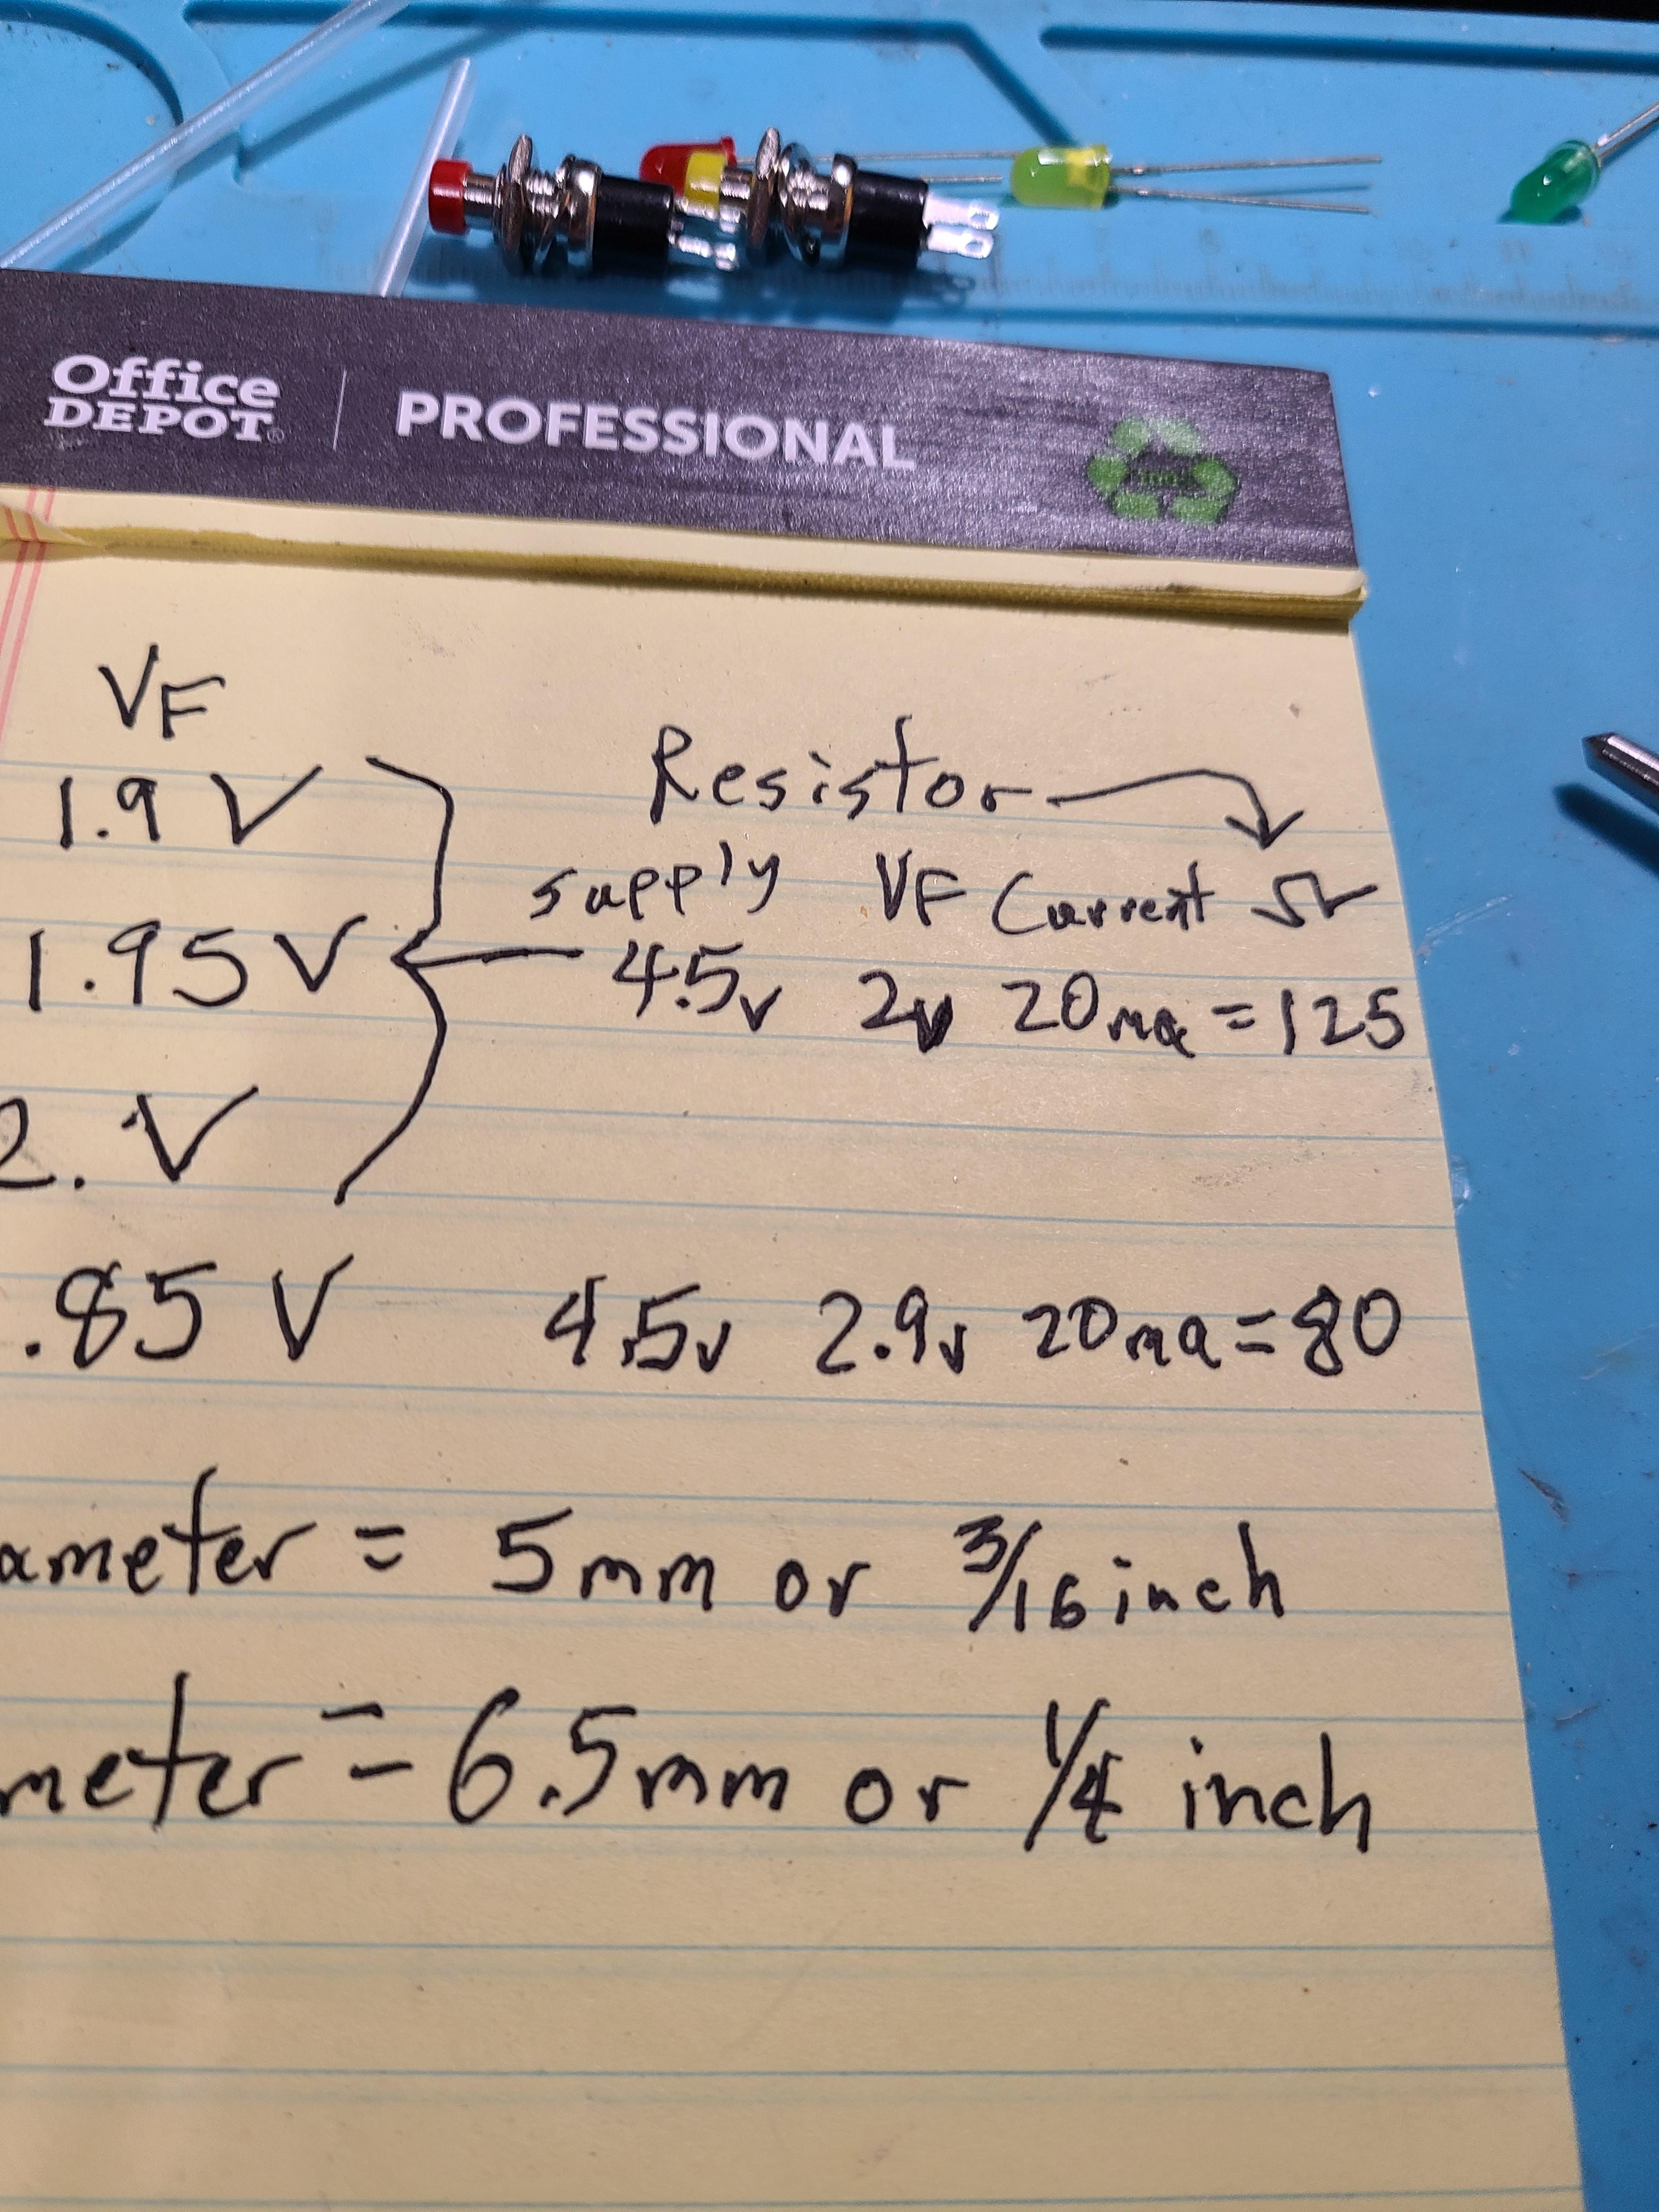 Office DEPOT® | PROFESSIONAL
VF
Resistor
1.9 V
supply VF Current Ω
1.95 V
4.5v 2v 20ma = 125
2. V
.85 V 4.5v 2.9v 20ma = 80
ameter = 5mm or 3/16 inch
meter = 6.5mm or 1/4 inch